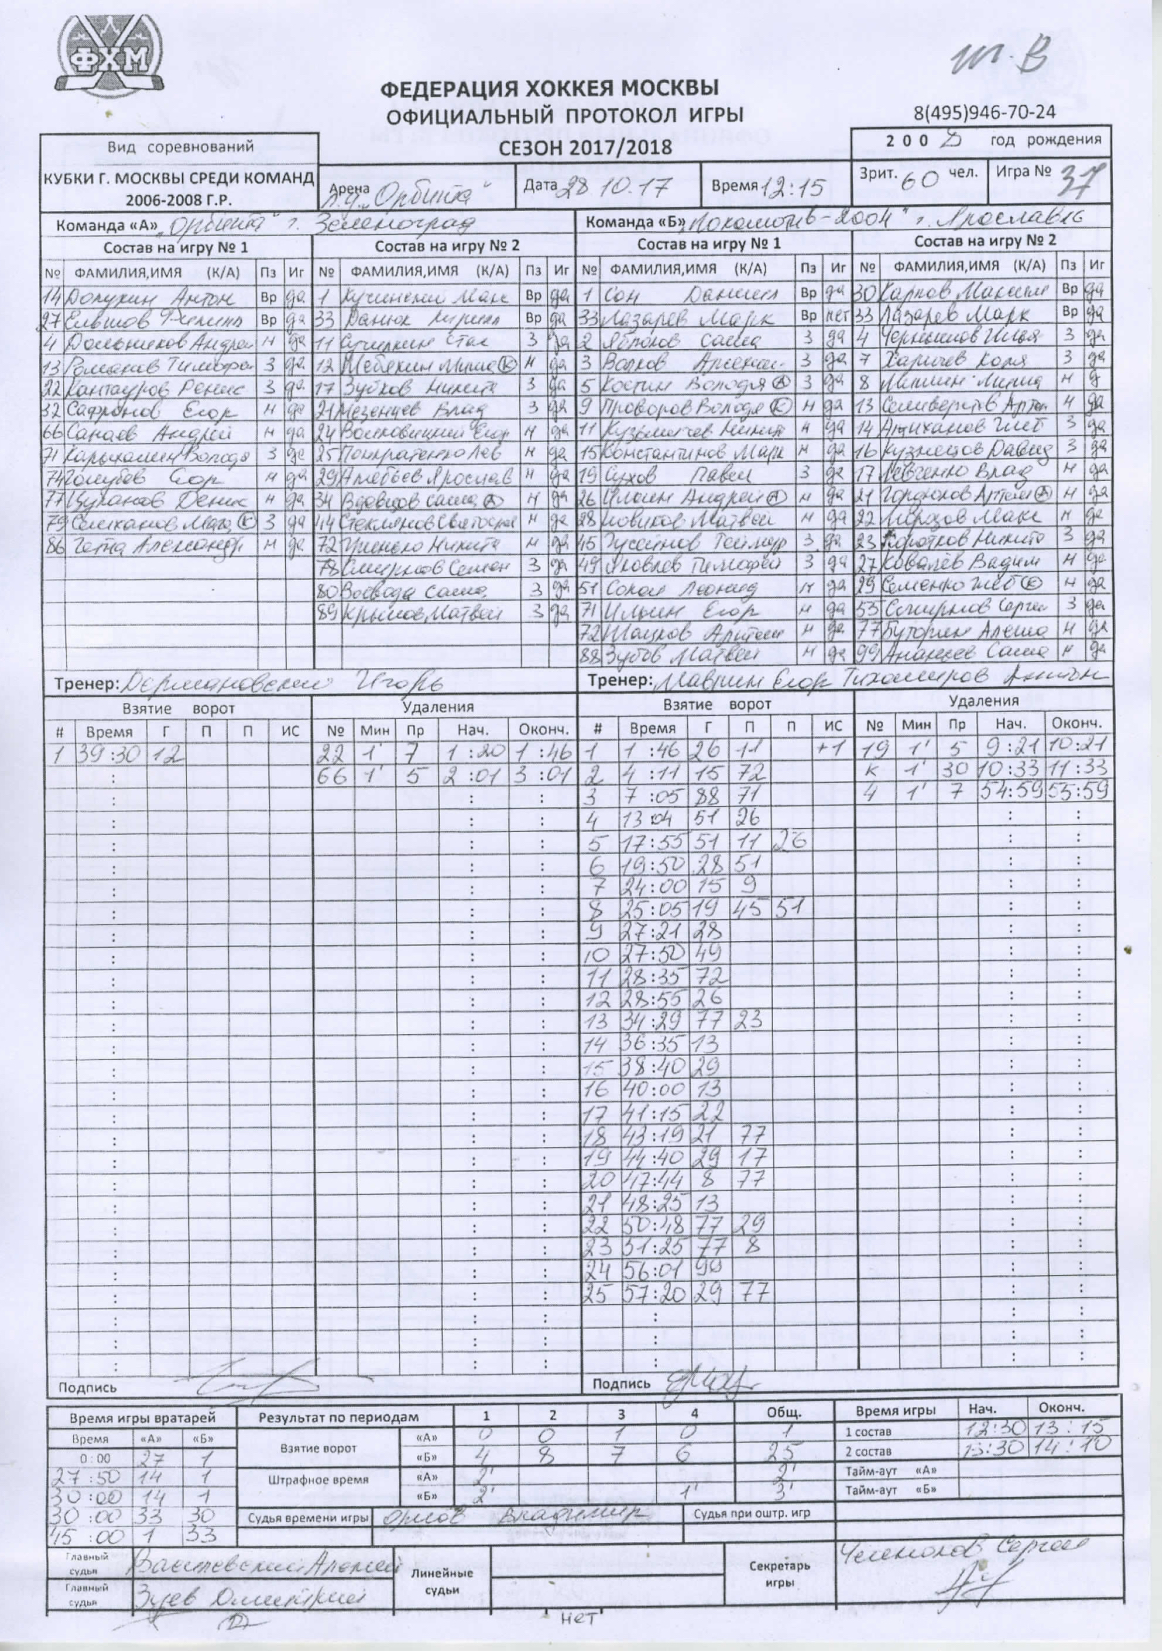 ФХМ
т.В
ФЕДЕРАЦИЯ ХОККЕЯ МОСКВЫ
ОФИЦИАЛЬНЫЙ ПРОТОКОЛ ИГРЫ
8(495)946-70-24
СЕЗОН 2017/2018
Вид соревнований
КУБКИ Г. МОСКВЫ СРЕДИ КОМАНД
2006-2008 Г.Р.
Арена "Орбита"
Дата 28 10.17
Время 12:15
200 год рождения
Зрит. 60 чел.
Игра № 37
Команда «А» "Орбита" г. Зеленоград
Команда «Б» "Локомотив-2004" г. Ярославль
Состав на игру № 1 Состав на игру № 2 Состав на игру № 1 Состав на игру № 2
№ ФАМИЛИЯ,ИМЯ (К/А) Пз Иг № ФАМИЛИЯ,ИМЯ (К/А) Пз Иг № ФАМИЛИЯ,ИМЯ (К/А) Пз Иг № ФАМИЛИЯ,ИМЯ (К/А) Пз Иг
14 Антон Вр да 1 Кучинский Макс Вр да 1 Сон Даниил Вр да 30 Карпов Максим Вр да
27 Вр да 33 Данюк Кирилл Вр да 33 Лазарев Марк Вр нет 33 Лазарев Марк Вр да
4 Андрей Н да 11 Стас З да 2 Яблоков Саша З да 4 Чернышов Илья З да
13 Тимофей З да 12 Миша К Н да 3 Волков Арсений З да 7 Харичев Коля З да
22 Кантауров Денис З да 17 Зубков Никита З да 5 Костин Володя А З да 8 Н
32 Сафронов Егор Н да 21 Мезенцев Влад З да 9 Проворов Володя К Н да 13 Селиверстов Артем Н да
66 Санаев Андрей Н да 24 Егор Н да 11 Кузьмичев Никита Н да 14 Глеб З да
71 Володя З да 25 Лев Н да 15 Константинов Марк Н да 16 Кузнецов Давид З да
74 Голубев Егор Н да 29 Ярослав Н да 19 Сухов Павел З да 17 Левченко Влад Н да
77 Цуканов Денис Н да 34 Вдовцов Саша А Н да 26 Андрей А Н да 21 Артем А Н да
79 К З да 44 Н да 28 Новиков Матвей Н да 22 Морозов Макс Н да
86 Александр Н да 72 Никита Н да 45 Гусейнов Теймур З да 23 Коротков Никита З да
78 Смирнов Семен З да 49 Яковлев Тимофей З да 27 Ковалев Вадим Н да
80 Воевода Саша З да 51 Сокол Леонид Н да 29 Семенко Глеб К Н да
89 Крылов Матвей З да 71 Ильин Егор Н да 53 Смирнов Сергей З да
72 Н да 77 Буторин Алеша Н да
88 Зубов Матвей Н да 99 Саша Н да
Тренер: Дермановский Игорь
Тренер: Маврин Егор Тихомиров Антон
Взятие ворот Удаления Взятие ворот Удаления
# Время Г П П ИС № Мин Пр Нач. Оконч. # Время Г П П ИС № Мин Пр Нач. Оконч.
1 39:30 12 22 1' 7 1:20 1:46 1 1:46 26 11 +1 19 1' 5 9:21 10:21
66 1' 5 2:01 3:01 2 4:11 15 72 К 1' 30 10:33 11:33
3 7:05 88 71 4 1' 7 54:59 55:59
4 13:04 51 26
5 17:55 51 11 26
6 19:50 28 51
7 24:00 15 9
8 25:05 19 45 51
9 27:21 28
10 27:50 49
11 28:35 72
12 28:55 26
13 34:29 77 23
14 36:35 13
15 38:40 29
16 40:00 13
17 41:15 22
18 43:19 21 77
19 44:40 29 17
20 47:44 8 77
21 48:25 13
22 50:48 77 29
23 51:25 77 8
24 56:01 99
25 57:20 29 77
Подпись
Подпись
Время игры вратарей Результат по периодам 1 2 3 4 Общ. Время игры Нач. Оконч.
Время «А» «Б»
Взятие ворот «А» 0 0 1 0 1 1 состав 12:30 13:15
0:00 27 1 «Б» 4 8 7 6 25 2 состав 13:30 14:10
27:50 14 1 Штрафное время «А» 2' 2' Тайм-аут «А»
30:00 14 1 «Б» 2' 1' 3' Тайм-аут «Б»
30:00 33 30 Судья времени игры Орлов Владимир Судья при оштр. игр
45:00 1 33
Главный судья Василевский Алексей
Главный судья Зуев Дмитрий
Линейные судьи
Секретарь игры Сергей
нет